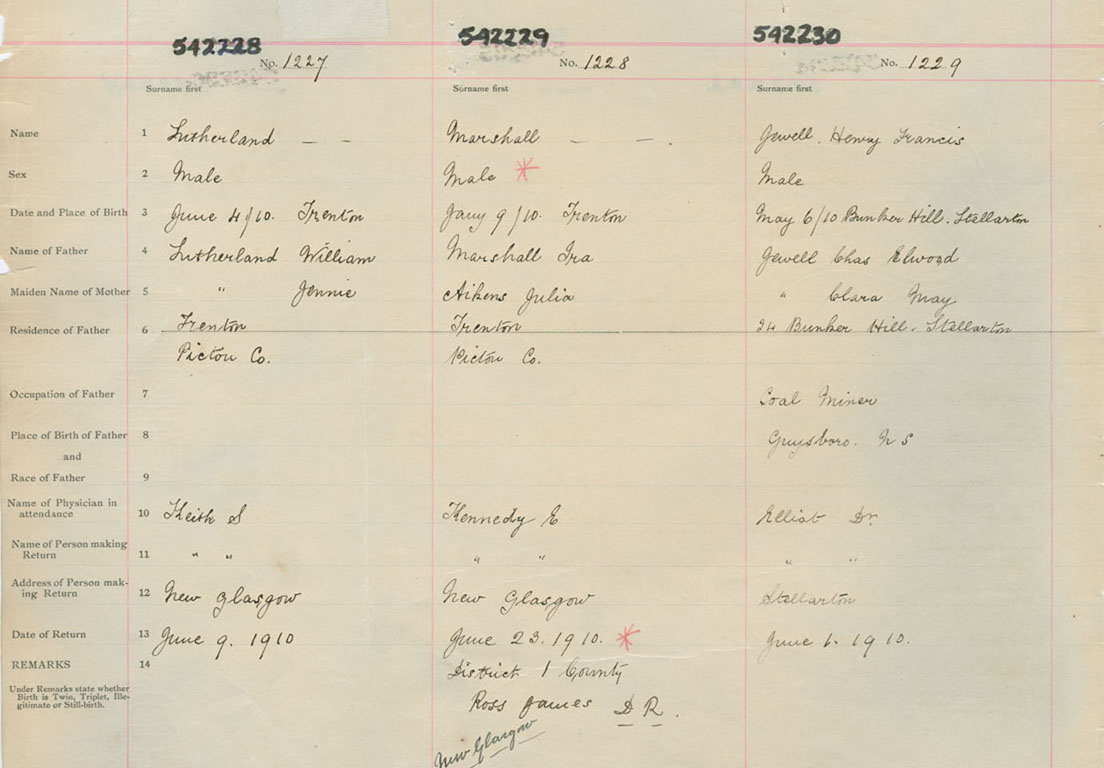 542228 542229 542230
No. 1227 No. 1228 No. 1229
Surname first Surname first Surname first
Name 1 Sutherland — – Marshall – – . Jewell. Henry Francis
Sex 2 Male Male * Male
Date and Place of Birth 3 June 4/10. Trenton Jany 9/10. Trenton May 6/10 Bunker Hill. Stellarton
Name of Father 4 Sutherland William Marshall Ira Jewell Chas Elwood
Maiden Name of Mother 5 " Jennie Aikens Julia " Clara May
Residence of Father 6 Trenton Trenton 24 Bunker Hill. Stellarton
Pictou Co. Pictou Co.
Occupation of Father 7 Coal Miner
Place of Birth of Father 8 Guysboro. N S
and
Race of Father 9
Name of Physician in
attendance 10 Keith S Kennedy E Elliot Dr
Name of Person making
Return 11 " " " " " "
Address of Person mak-
ing Return 12 New Glasgow New Glasgow Stellarton
Date of Return 13 June 9. 1910 June 23. 1910. * June 6. 1910.
REMARKS 14 District 1 County
Under Remarks state whether
Birth is Twin, Triplet, Ille-
gitimate or Still-birth.
Ross James D R.
New Glasgow